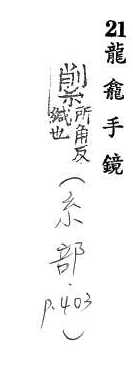 21 龍龕手鏡
所角反
緘也
(糸部.p.403)